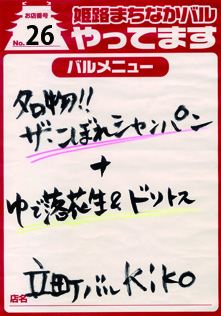 お店番号
No. 26
姫路まちなかバル
やってます
バルメニュー
名物!!
ザ・こぼれシャンパン
+
ゆで落花生&ドリトス
立町バル KiKo
店名